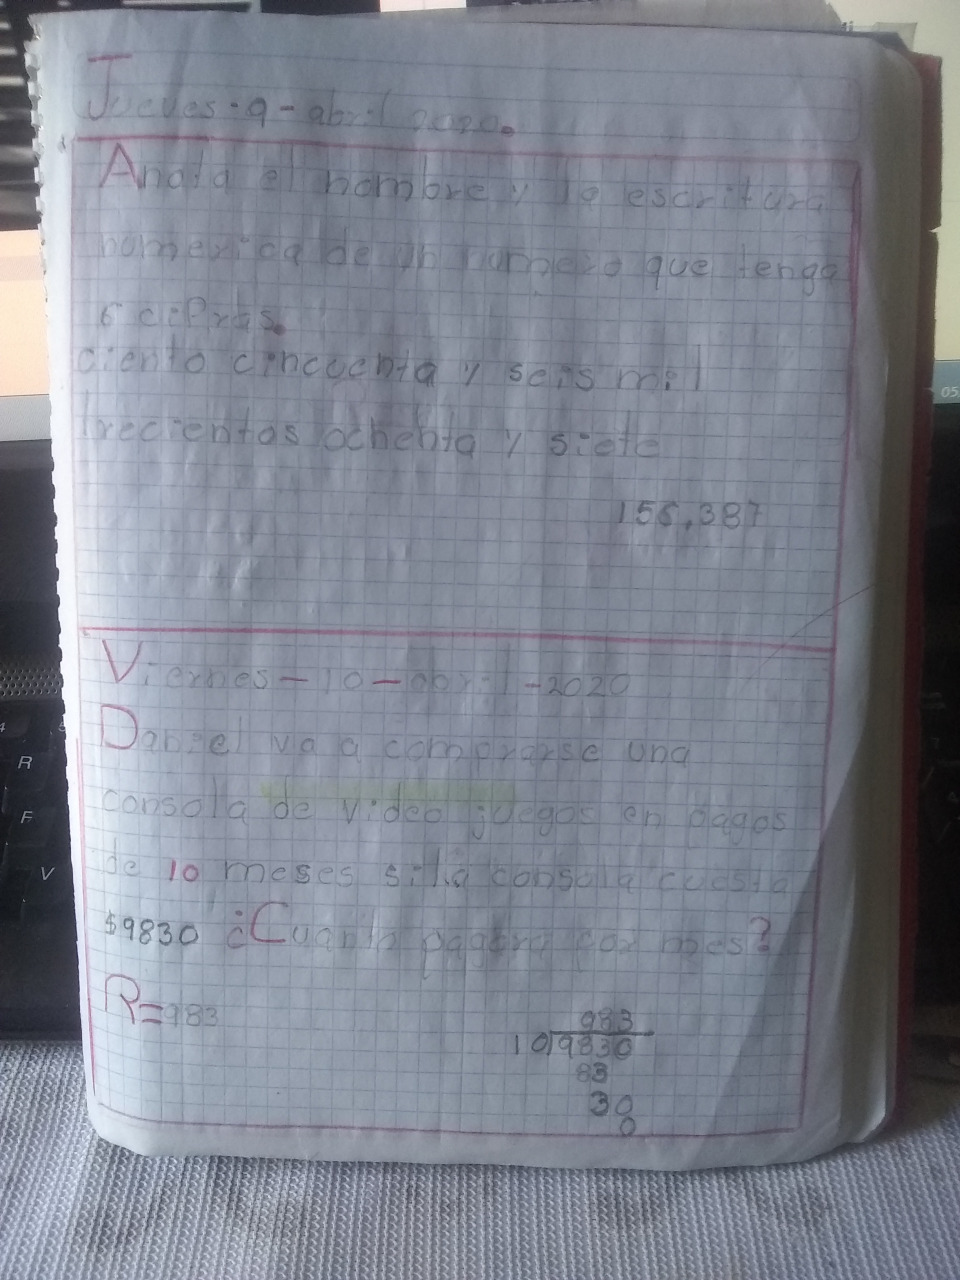 Jueves-9-abril 2020.
Anota el nombre y la escritura
numerica de un numero que tenga
6 cifras.
ciento cincuenta y seis mil
trecientos ochenta y siete
156,387
Viernes-10-abril-2020
Daniel va a comprarse una
consola de video juegos en pagos
de 10 meses si la consola cuesta
$9830 ¿Cuanto pagara por mes?
R=983
983
10 9830
83
30
0
R
F
V
05